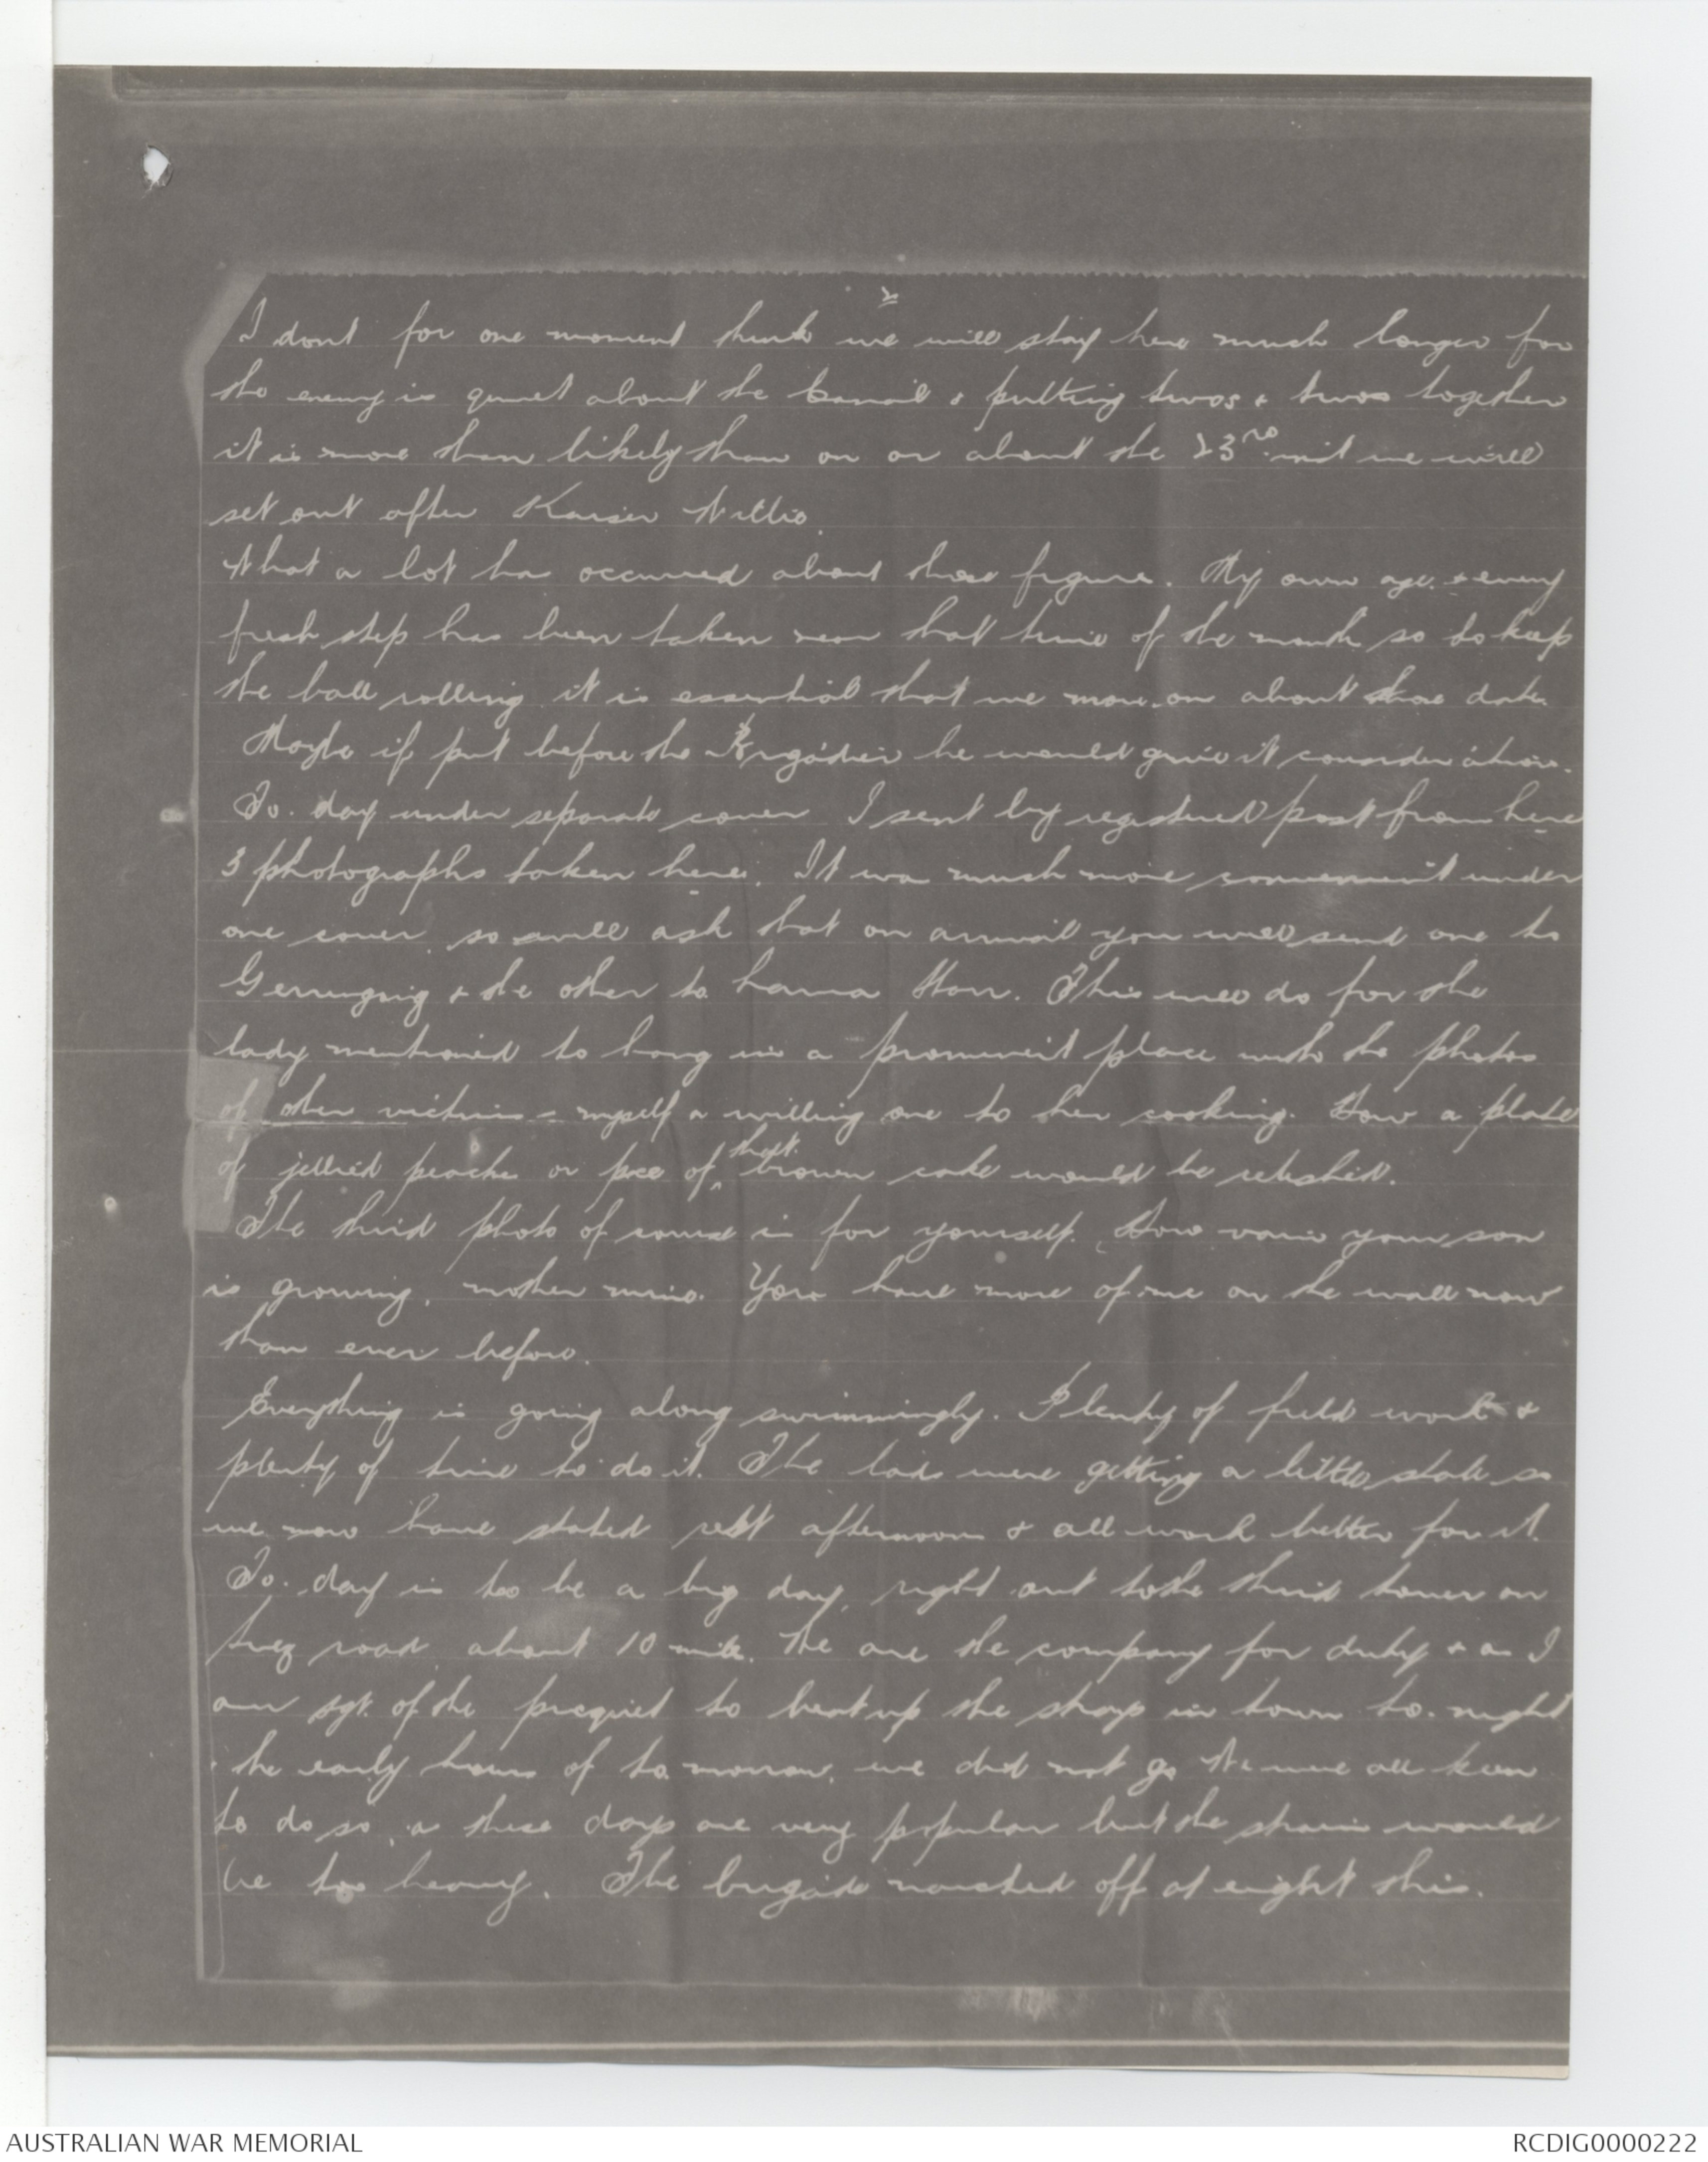 2
I dont for one moment think we will stay here much longer for
the enemy is quiet about the Canal & putting twos & twos together
it is more than likely than on or about the 23rd inst we will
set out after Kaiser Willie.
What a lot has occurred about those figures. My own age & every
fresh step has been taken near that time of the month so to keep
the ball rolling it is essential that we move on about those date.
Maybe if put before the Brigadier he would give it consideration.
To. day under separate cover I sent by registered post from here
3 photographs taken here. It was much more convenient under
one cover so will ask that on arrival you will send one to
Gerringong & the other to Starr. This will do for the
lady mentioned to hang in a prominent place with the photos
of other victims - myself a willing one to her cooking. How a plate
of jellied peaches or pce of that brown cake would be relished.
The third photo of course is for yourself. How vain your son
is growing, mother mine. You have more of me on the wall now
than ever before.
Everything is going along swimmingly. Plenty of field work &
plenty of time to do it. The lads were getting a little stale so
we now have stated rest afternoons & all work better for it.
To. day is too be a big day, right out to the third tower on
Suez road about 10 mile. We are the company for duty & as I
am sgt. of the picquet to beat up the strays in town to. night
& the early hours of to. morrow, we did not go. We were all keen
to do so, as these days are very popular but the strain would
be too heavy. The brigade marched off at eight this.
AUSTRALIAN WAR MEMORIAL
RCDIG0000222